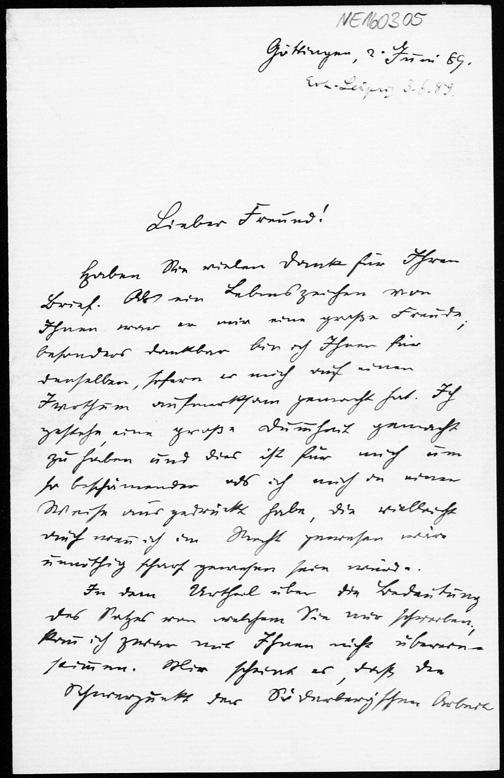 NE160305
Göttingen, 2. Juni 89.
Erh. Leipzig 3.6.89.
Lieber Freund!
Haben Sie vielen Dank für Ihren
Brief. Als ein Lebenszeichen von
Ihnen war er mir eine große Freude;
besonders dankbar bin ich Ihnen für
denselben, sofern er mich auf einen
Irrthum aufmerksam gemacht hat. Ich
gestehe, eine große Dummheit gemacht
zu haben und dies ist für mich um
so beschämender als ich mich in einer
Weise ausgedrückt habe, die vielleicht
auch wenn ich im Recht gewesen wäre
unnöthig scharf gewesen sein würde.
In dem Urtheil über die Bedeutung
des Satzes von welchem Sie mir schreiben,
kann ich zwar mit Ihnen nicht überein-
stimmen. Mir scheint es, daß der
Schwerpunkt der Söderberg'schen Arbeit